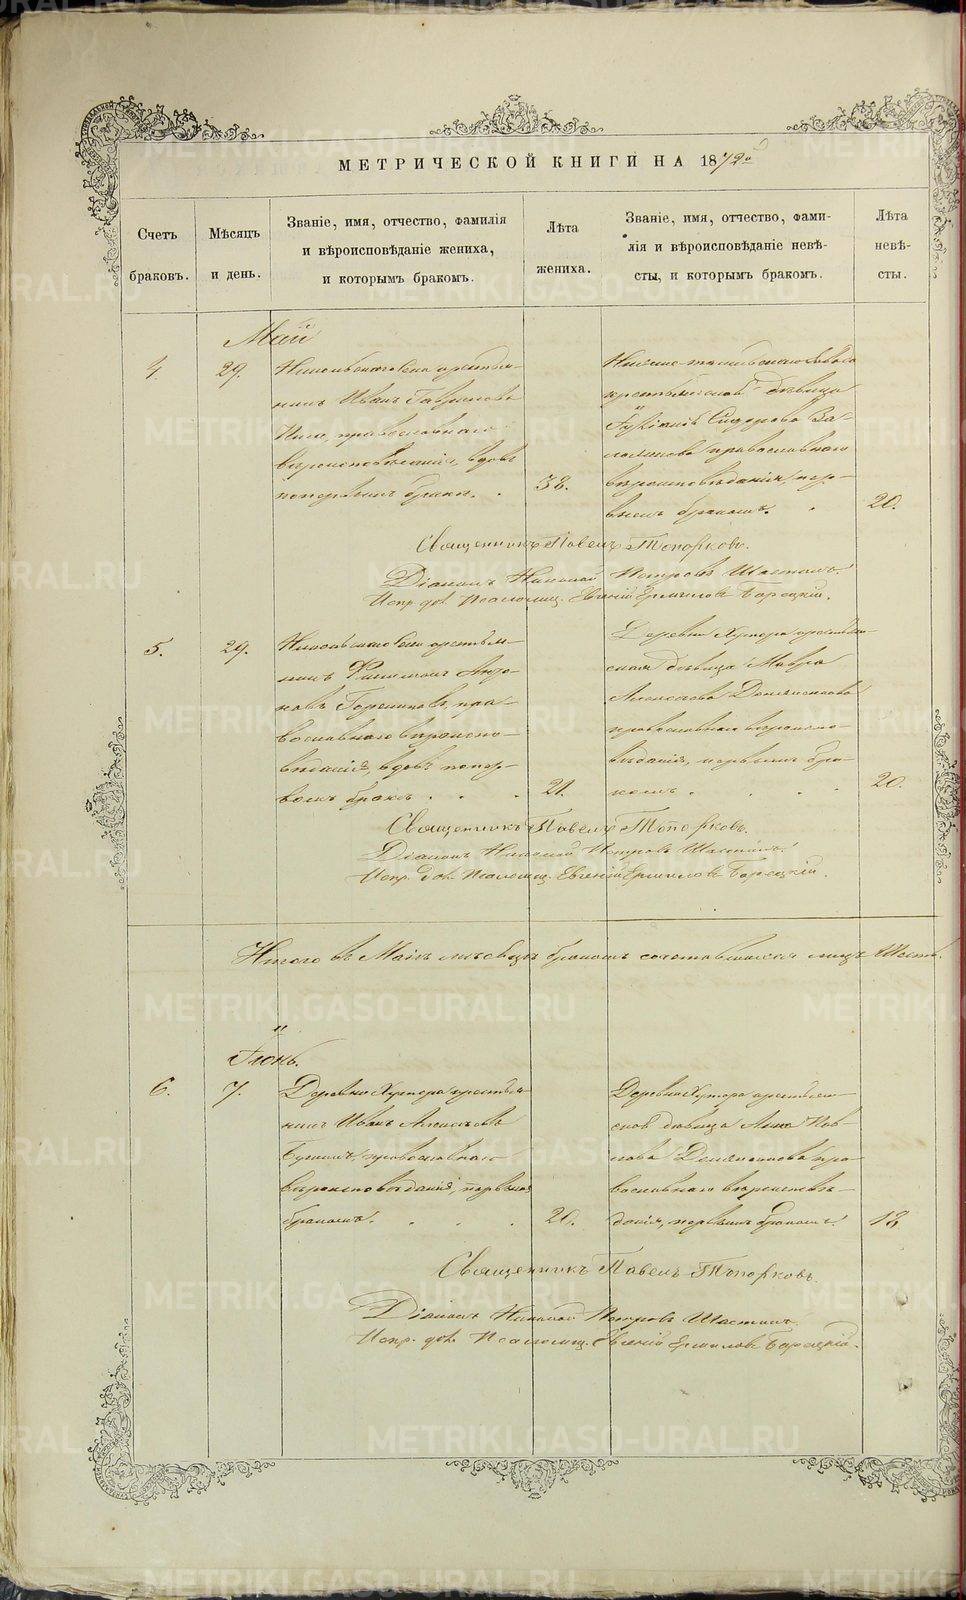 МЕТРИЧЕСКОЙ КНИГИ НА 1872 го
Счетъ браковъ.
Мѣсяцъ и день.
Званіе, имя, отчество, фамилія
и вѣроисповѣданіе жениха,
и которымъ бракомъ.
Лѣта жениха.
Званіе, имя, отчество, фами-
лія и вѣроисповѣданіе невѣ-
сты, и которымъ бракомъ.
Лѣта невѣ-
сты.
Май
4.
29.
крестья-
нинъ Иванъ Гавриловъ
православнаго
вѣроисповѣданія, вдовъ
по первомъ бракѣ.
38.
крестьянская дѣвица
Сидорова
православнаго
вѣроисповѣданія, пер-
вымъ бракомъ.
20.
Священникъ Павелъ Топорковъ.
Діаконъ Николай Петровъ
Испр. дол. Псаломщ. Евгеній Ермиловъ Барецкій.
5.
29.
Никольскаго села крестья-
нинъ Филимонъ Анто-
новъ пра-
вославнаго вѣроиспо-
вѣданія, вдовъ по пер-
вомъ бракѣ
21.
Деревни Хутора крестьян-
ская дѣвица Мавра
Алексѣева
православнаго вѣроиспо-
вѣданія, первымъ бра-
комъ
20.
Священникъ Павелъ Топорковъ.
Діаконъ Николай Петровъ
Испр. дол. Псаломщ. Евгеній Ермиловъ Барецкій.
Итого въ Маѣ мѣсяцѣ бракомъ сочетавшихся лицъ Шесть.
Іюнь.
6.
7.
Деревни Хутора крестья-
нинъ Иванъ Алексѣевъ
православнаго
вѣроисповѣданія, первымъ
бракомъ.
20.
Деревни Хутора крестьян-
ская дѣвица Анна Пав-
лова пра-
вославнаго вѣроисповѣ-
данія, первымъ бракомъ.
18
Священникъ Павелъ Топорковъ.
Діаконъ Николай Петровъ
Испр. дол. Псаломщ. Евгеній Ермиловъ Барецкій.
METRIKI.GASO-URAL.RU